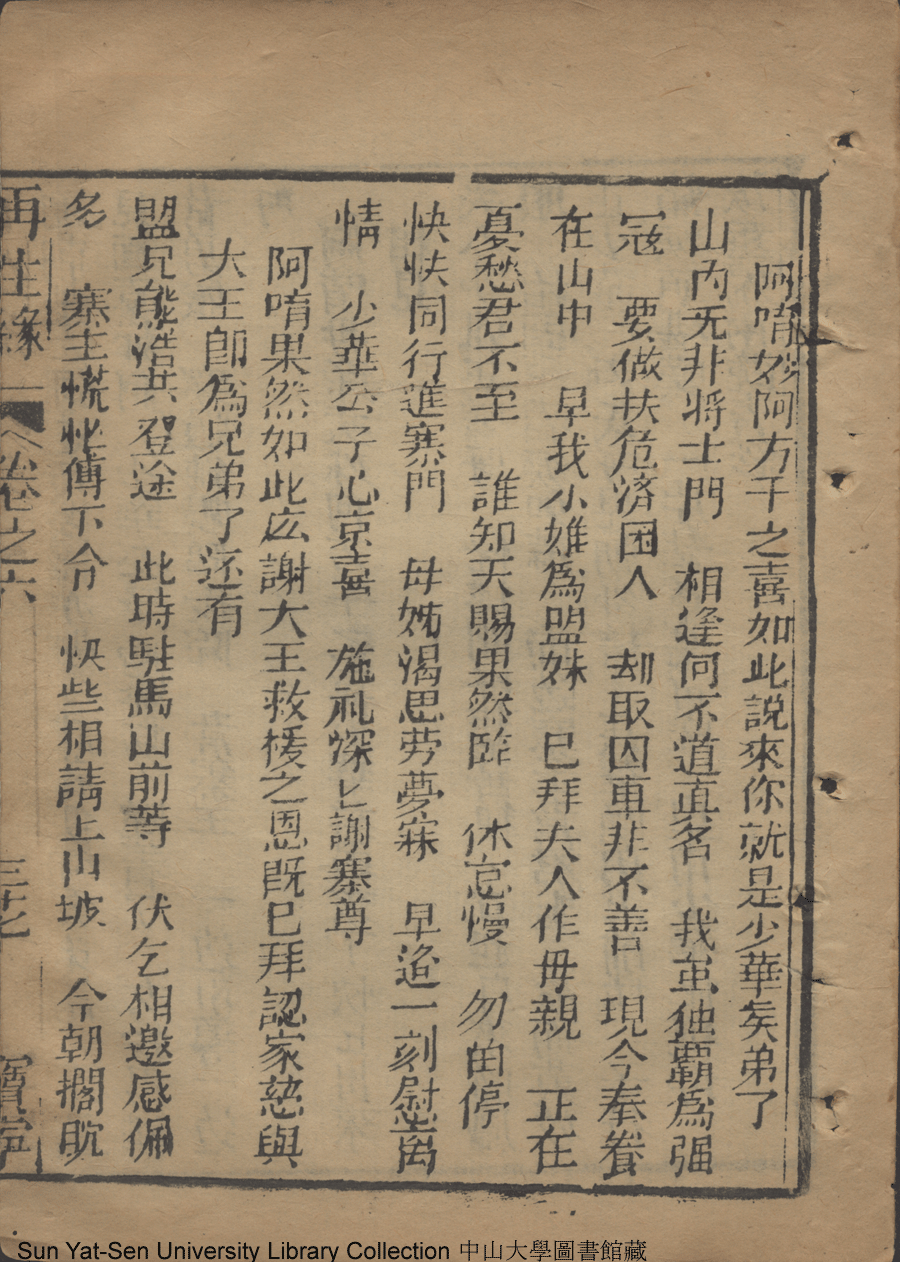 阿唷妙阿方千之喜如此說來你就是少華矣弟了
山內无非将士門　相逢何不道真名　我虽独覇為强
冦　要做扶危済困人　刼取囚車非不善　現今奉眷
在山中　早我小雄為盟妹　已拜夫人作毋親　正在
憂愁君不至　誰知天賜果然臨　休怠慢　勿留停
快快同行進寨門　母姊渴思劳夢寐　早迯一刻慰离
情　少華公子心京喜　施礼深〻謝寨尊
阿唷果然如此広謝大王救楥之恩既已拜認家慈與
大王即為兄弟了还有
盟兄熊浩共登途　此時駐馬山前等　伏乞相邀感佩
多　寨主慌忙傳下令　快些相請上山坡　今朝擱耽
再生緣　卷之六　三十七　寶寧
Sun Yat-Sen University Library Collection 中山大學圖書館藏